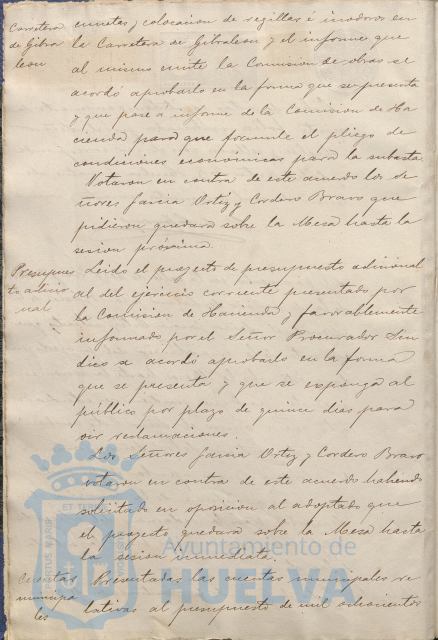 Carretera
de Gibra
leon
cunetas y colocacion de regillas é inodoros en
la Carretera de Gibraleon y el informe que
al mismo emite la Comision de obras se
acordó aprobarlo en la forma que se presenta
y que pase a informe de la Comision de Ha
cienda para que formule el pliego de
condiciones economicas para la subasta.
Votaron en contra de este acuerdo los Se
ñores Garcia Ortiz y Cordero Bravo que
pidieron quedara sobre la Mesa hasta la
sesion próxima.
Presupues
to adicio
nal
Leido el proyecto de presupuesto adicional
al del ejercicio corriente presentado por
la Comision de Hacienda y favorablemente
informado por el Señor Procurador Sin
dico se acordó aprobarlo en la forma
que se presenta y que se exponga al
público por plazo de quince dias para
oir reclamaciones.
Los Señores Garcia Ortiz y Cordero Bravo
votaron en contra de este acuerdo habiendo
solicitado en oposicion al adoptado que
el proyecto quedara sobre la Mesa hasta
la sesion inmediata.
Cuentas
municipa
les
Presentadas las cuentas municipales re
lativas al presupuesto de mil ochocientos
Ayuntamiento de
HUELVA